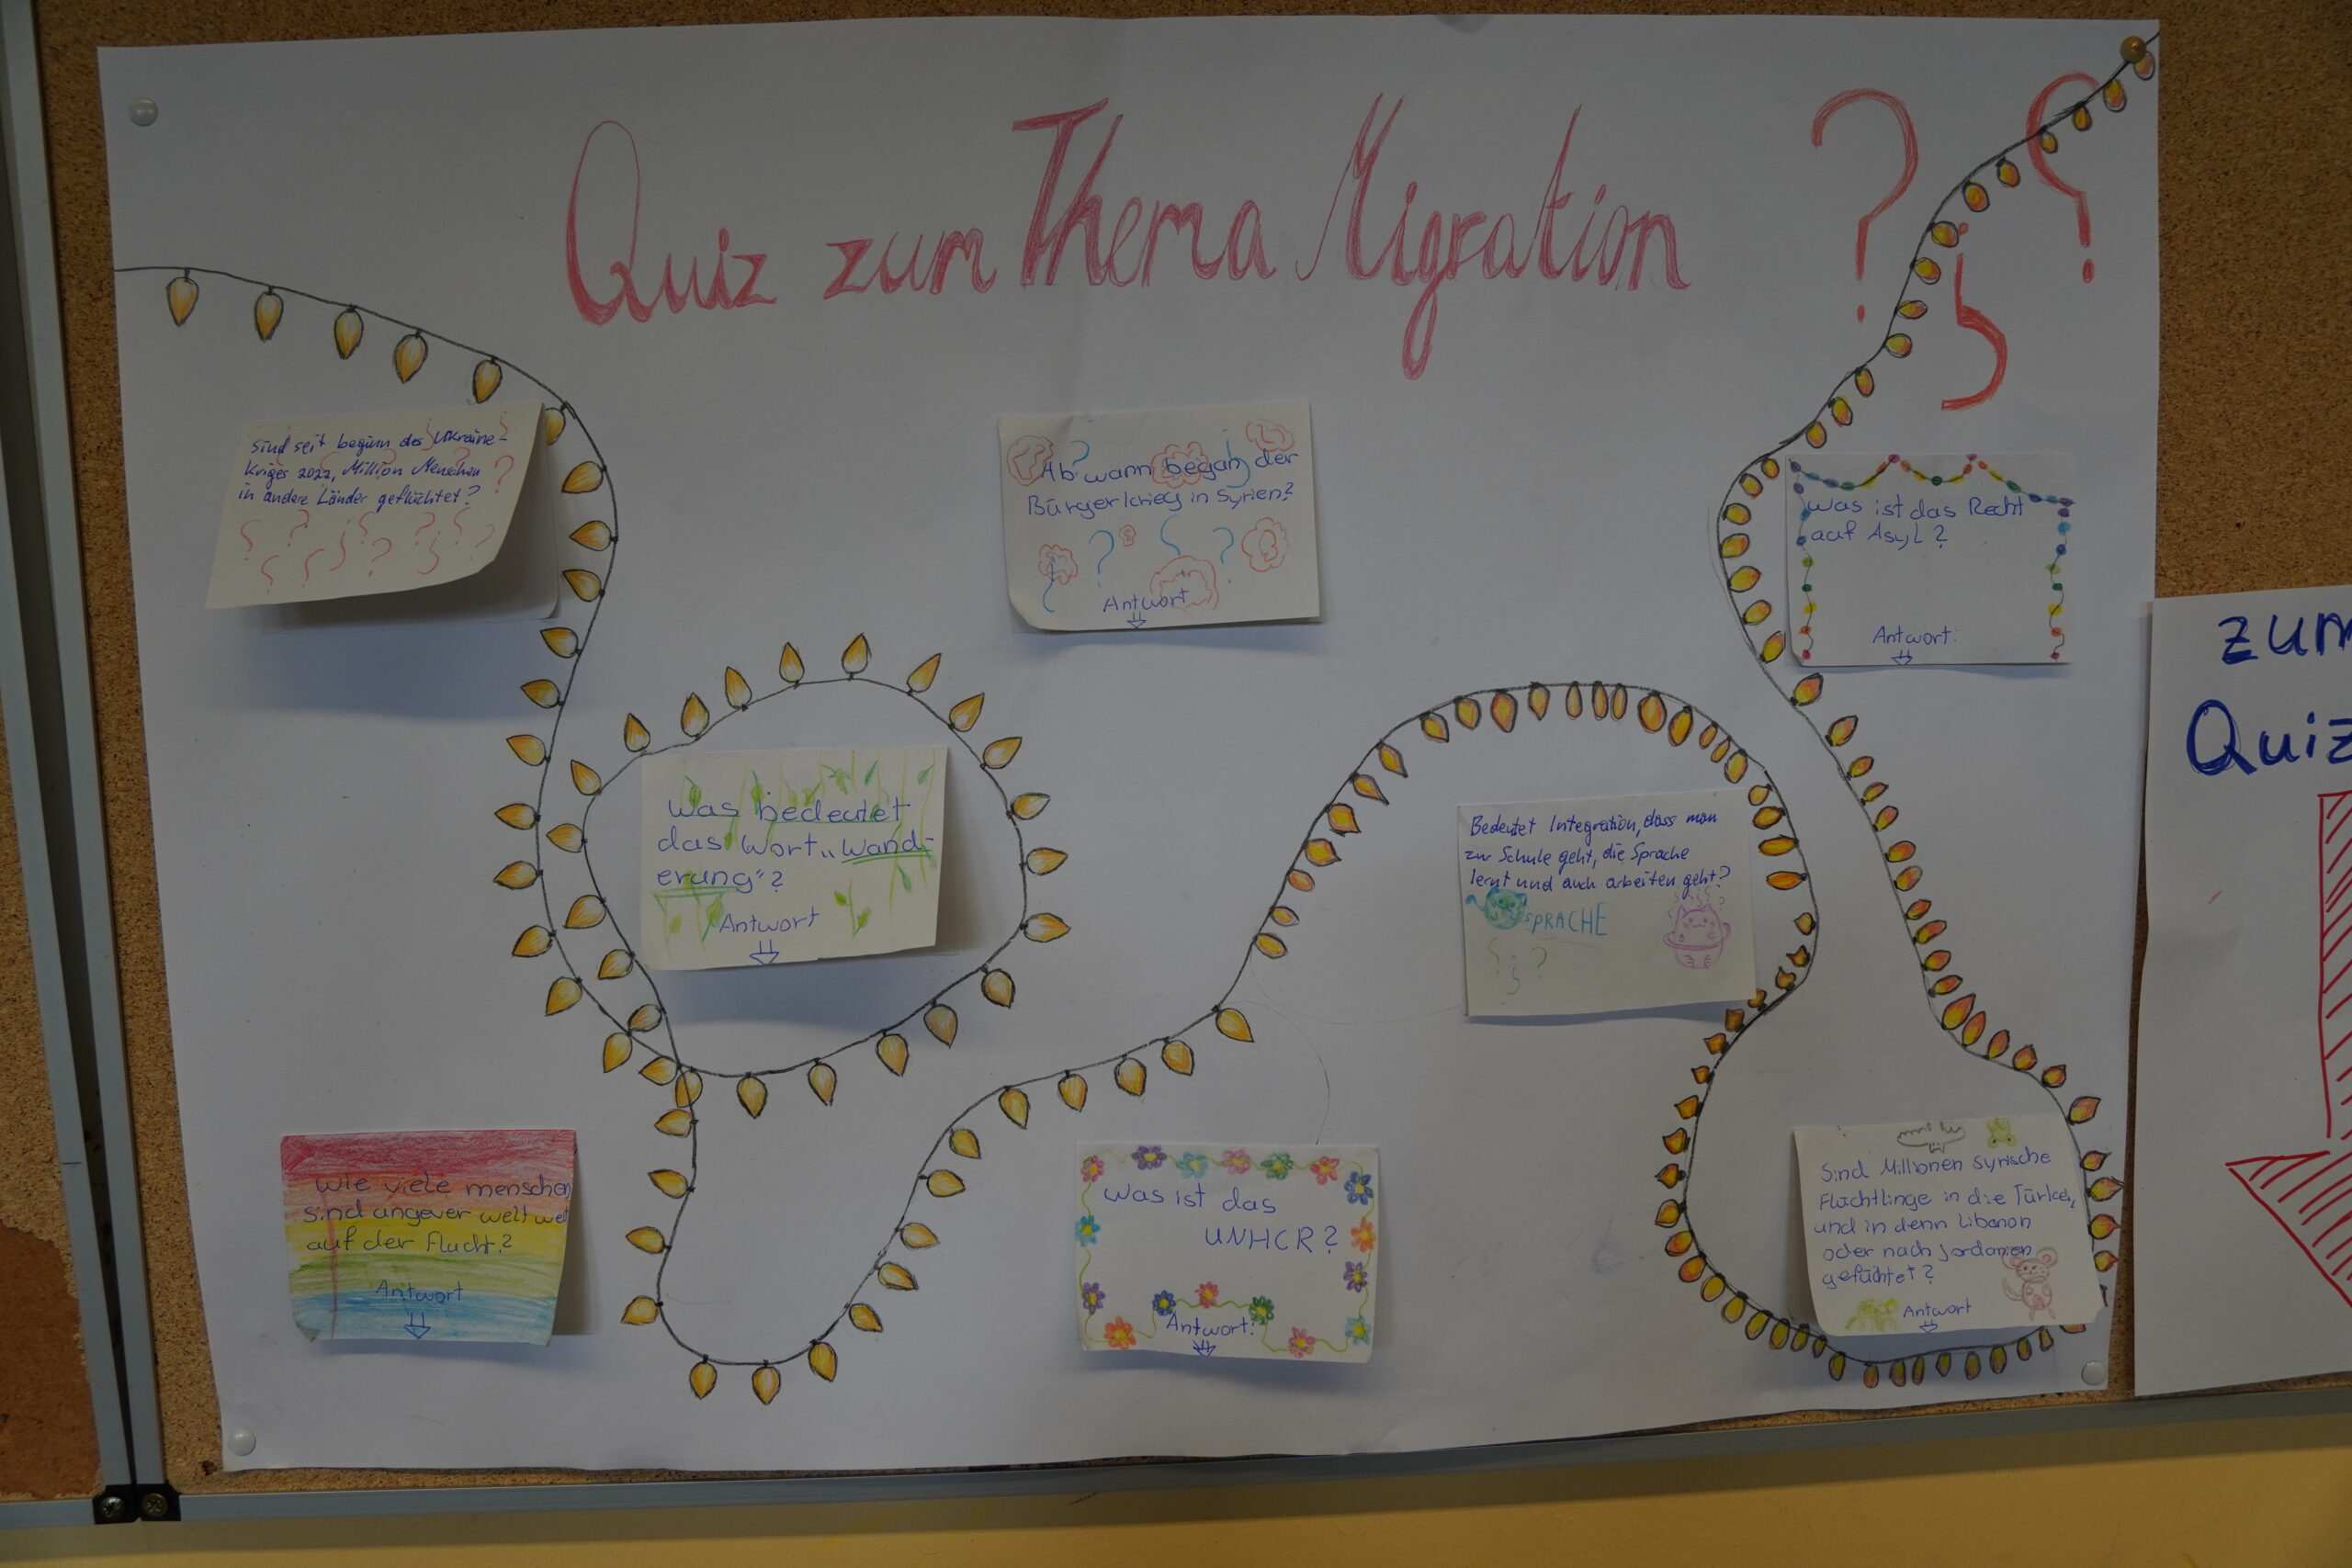 Quiz zum Thema Migration ? ? ?
Sind seit beginn des Ukraine-
Kriges 2022, Million Menschen
in andere Länder geflüchtet?
Ab wann began der
Bürgerkrieg in Syrien?
Antwort
Was ist das Recht
auf Asyl?
Antwort:
Was bedeutet
das Wort „Wand-
erung"?
Antwort
Bedeutet Integration, dass man
zur Schule geht, die Sprache
lernt und auch arbeiten geht?
SPRACHE
Wie viele menschen
sind ungever welt weit
auf der Flucht?
Antwort
Was ist das
UNHCR?
Antwort:
Sind Millionen syrische
Flüchtlinge in die Türkei,
und in denn Libanon
oder nach Jordanien
geflüchtet?
Antwort
zum
Quiz